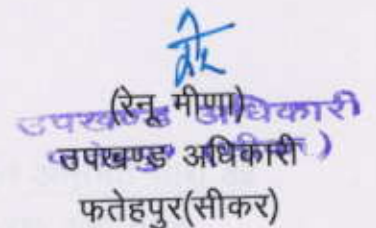 (रेनू मीणा)
उपखण्ड अधिकारी
उपखण्ड अधिकारी
फतेहपुर(सीकर)